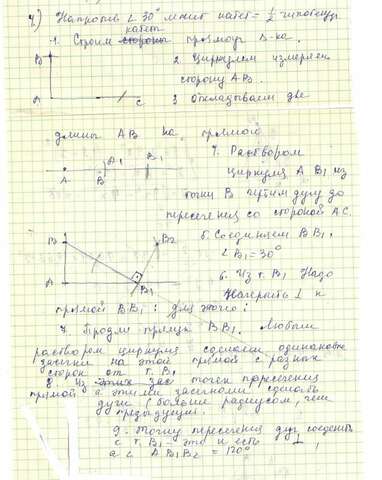 4) Напротив ∠ 30° лежит катет = ½ гипотенузы
катет
1. Строим стороны прямоуг Δ-ка.
B
A C
2. Циркулем измеряем
сторону AB.
3. Откладываем две
длины AB на прямой
A B B1
4. Раствором
циркуля A B1 из
точки B путём дугу до
пересечения со стороной AC.
B B2
A B1
5. Соединяем BB1.
∠B1 = 30°
6. Из т. B1 надо
начертить ⊥ к
прямой BB1: для этого:
7. Продлен прямую BB1. Любым
раствором циркуля сделаем одинаковые
засечки на этой прямой с разных
сторон от т. B1
8. Из этих зас точек пересечения
прямой с этими засечками сделать
дуги (больше радиусом, чем
предыдущие.
9. Точку пересечения дуг соединить
с т. B1 – это и есть ⊥,
а ∠ A B1 B2 = 120°